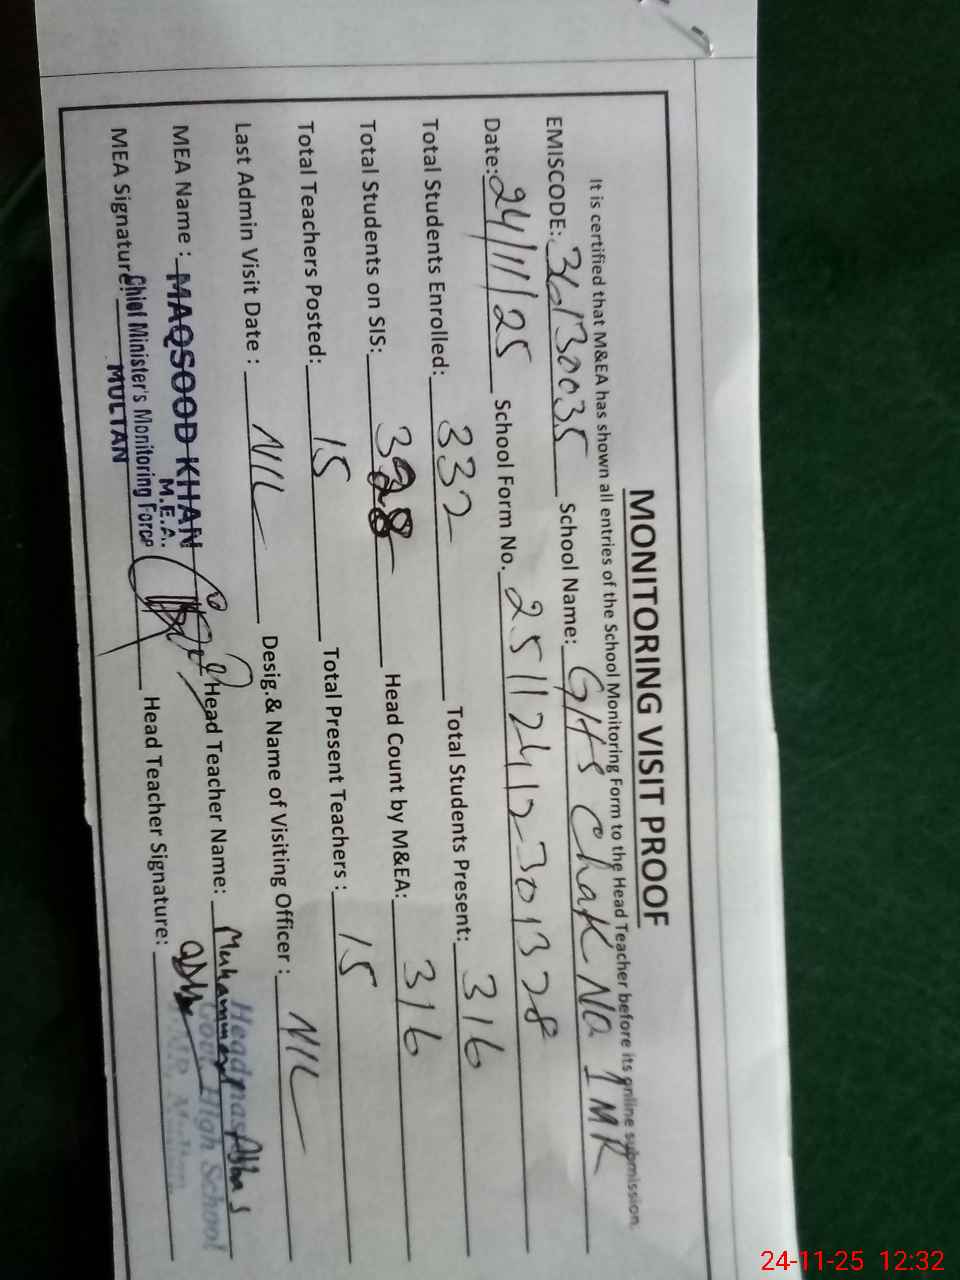 MONITORING VISIT PROOF
It is certified that M&EA has shown all entries of the School Monitoring Form to the Head Teacher before its online submission.
EMISCODE: 36130035 School Name: GHS Chak No 1 MR
Date: 24/11/25 School Form No. 25112412301328
Total Students Enrolled: 332 Total Students Present: 316
Total Students on SIS: 328 Head Count by M&EA: 316
Total Teachers Posted: 15 Total Present Teachers : 15
Last Admin Visit Date : NIL Desig.& Name of Visiting Officer : NIL
MEA Name : MAQSOOD KHAN Head Teacher Name: Muhammad Abbas
M.E.A. Headmas
MEA Signature: Chief Minister's Monitoring Force Head Teacher Signature: Govt. High School
MULTAN
24-11-25 12:32